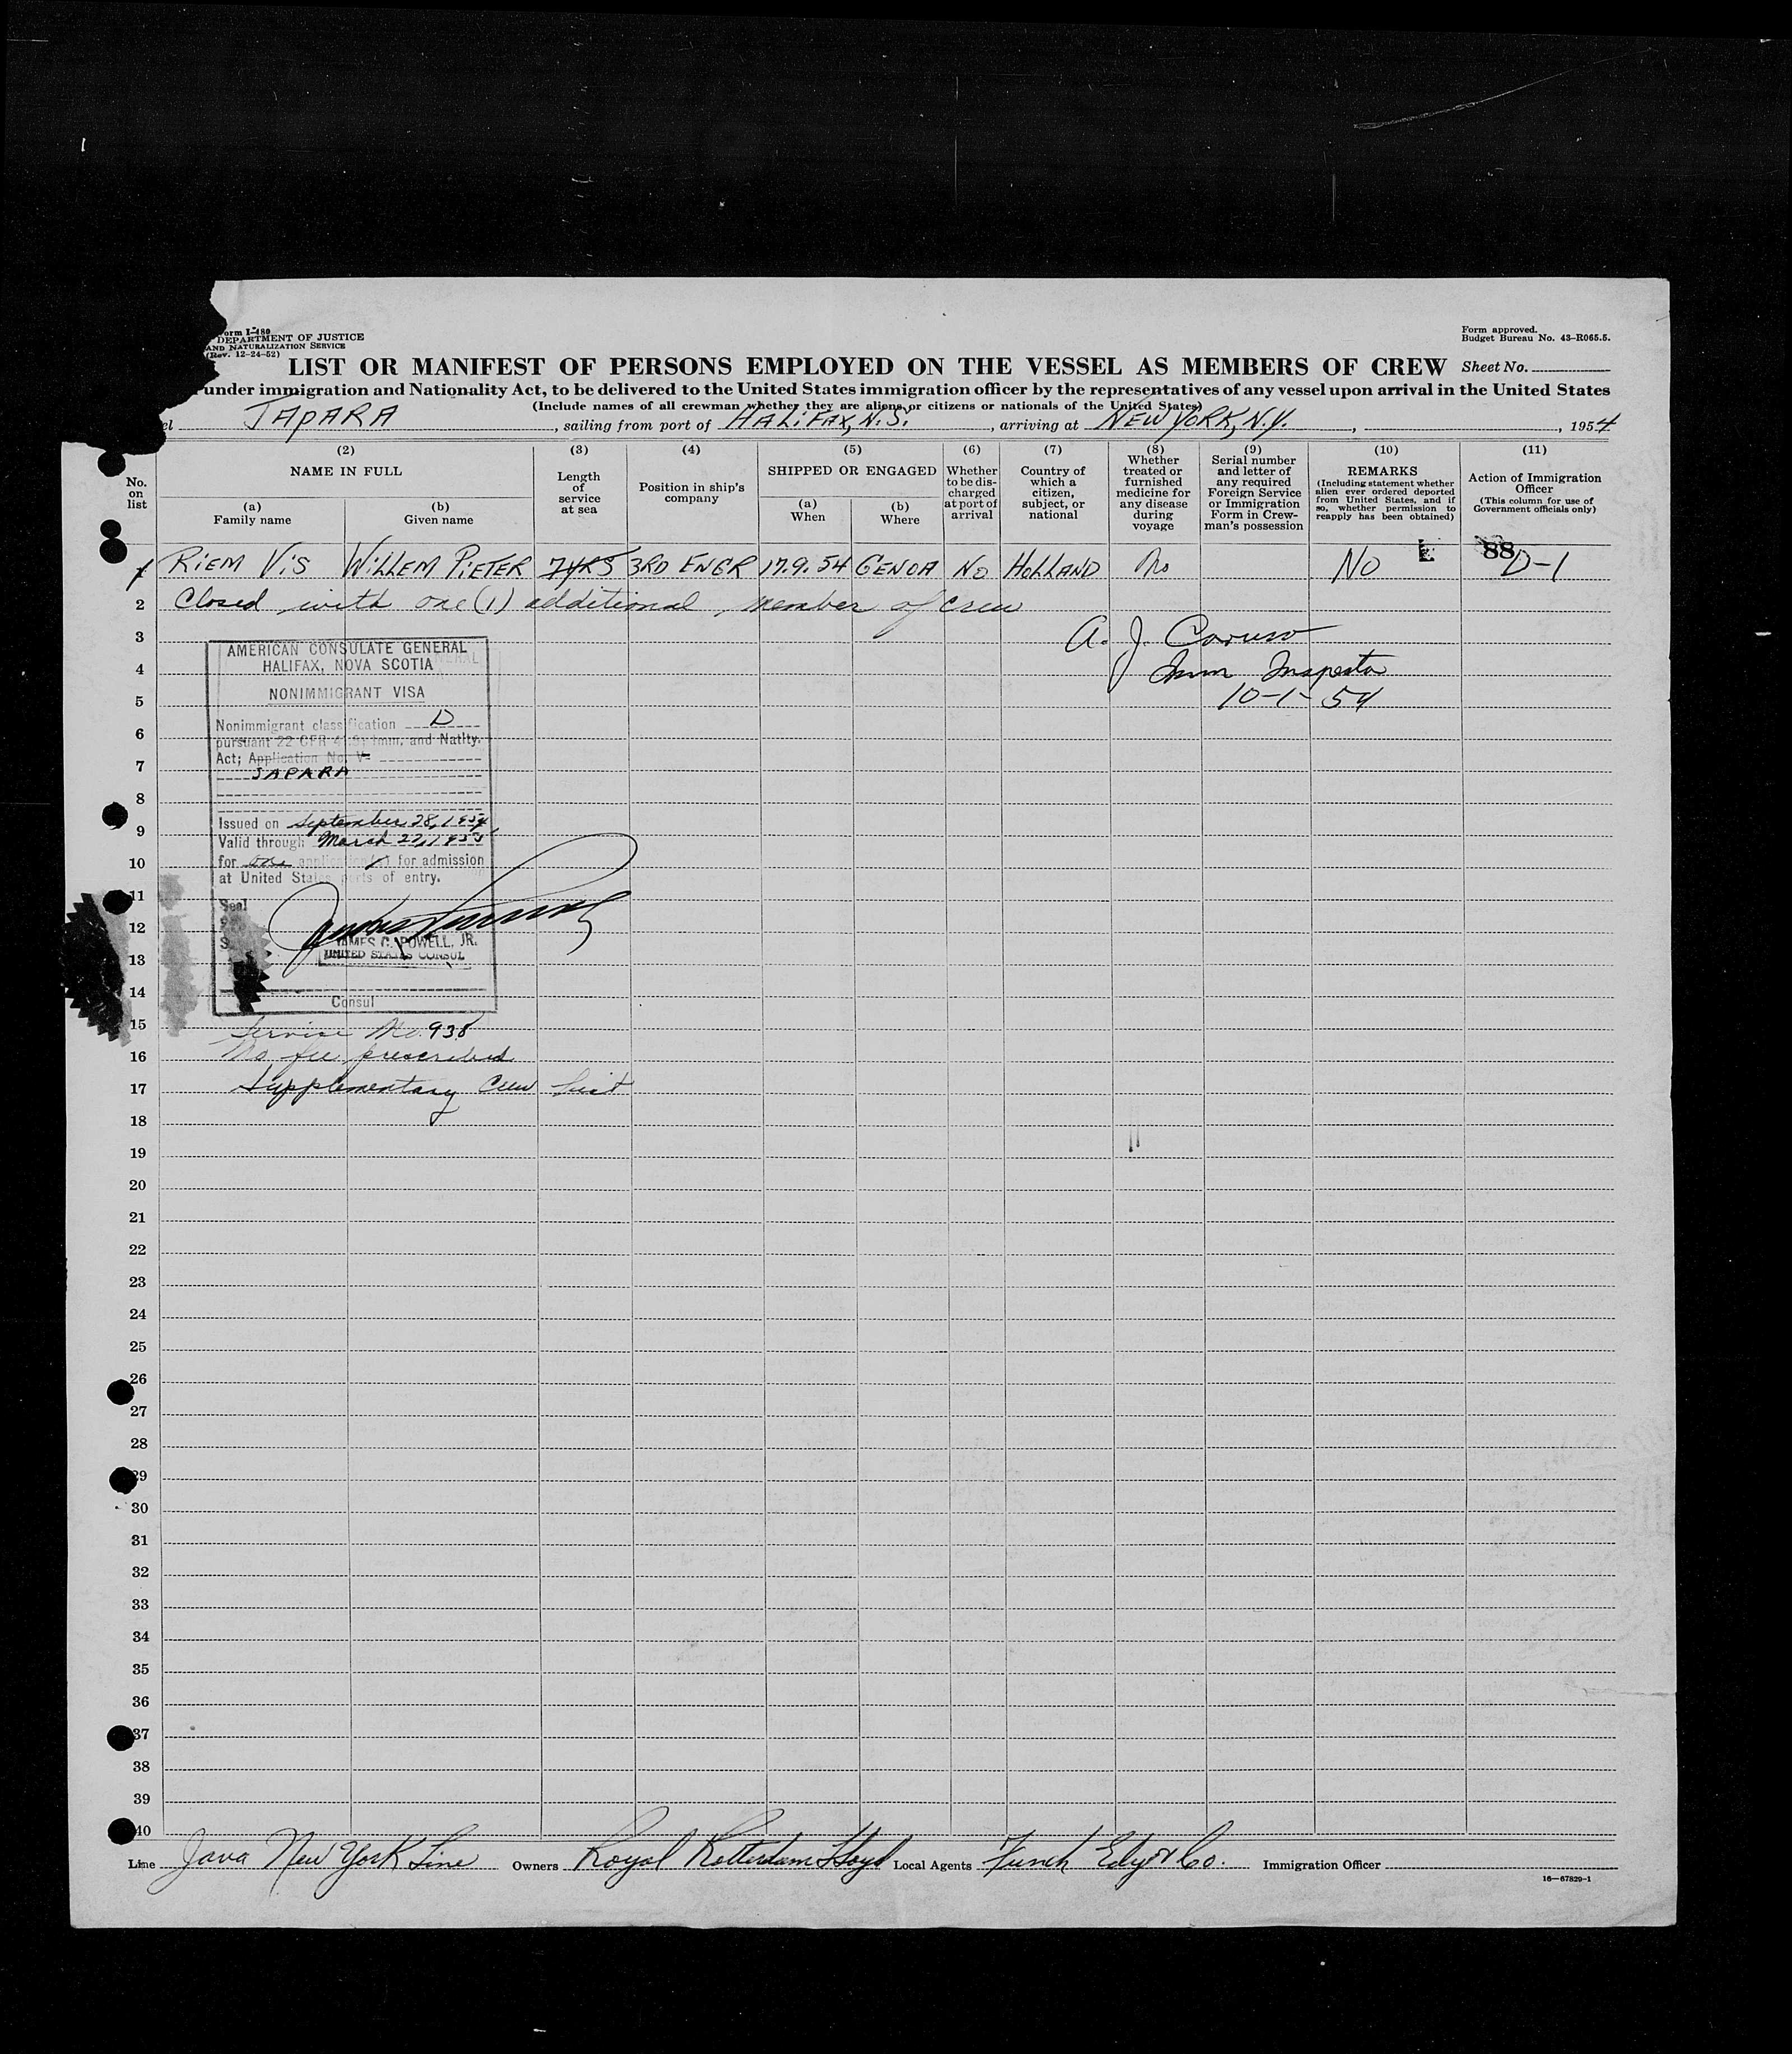 orm I-480
DEPARTMENT OF JUSTICE
AND NATURALIZATION SERVICE
(Rev. 12-24-52)
Form approved.
Budget Bureau No. 43-R065.5.
LIST OR MANIFEST OF PERSONS EMPLOYED ON THE VESSEL AS MEMBERS OF CREW Sheet No.
under immigration and Nationality Act, to be delivered to the United States immigration officer by the representatives of any vessel upon arrival in the United States
(Include names of all crewman whether they are aliens or citizens or nationals of the United States)
el JAPARA, sailing from port of HALIFAX, N.S., arriving at NEW YORK, N.Y., , 1954
No. on list
(2) NAME IN FULL
(a) Family name
(b) Given name
(3) Length of service at sea
(4) Position in ship's company
(5) SHIPPED OR ENGAGED
(a) When
(b) Where
(6) Whether to be discharged at port of arrival
(7) Country of which a citizen, subject, or national
(8) Whether treated or furnished medicine for any disease during voyage
(9) Serial number and letter of any required Foreign Service or Immigration Form in Crewman's possession
(10) REMARKS (Including statement whether alien ever ordered deported from United States, and if so, whether permission to reapply has been obtained)
(11) Action of Immigration Officer (This column for use of Government officials only)
1 RIEM VIS WILLEM PIETER 7YRS 3RD ENGR 17.9.54 GENOA NO HOLLAND No NO 88 D-1
2 Closed with one (1) additional member of crew
3 A. J. Caruso
4 Imm Inspector
5 10-1-54
AMERICAN CONSULATE GENERAL
HALIFAX, NOVA SCOTIA
NONIMMIGRANT VISA
Nonimmigrant classification D
pursuant 22 CFR 41.91 Imm. and Natlty.
Act; Application No. V-
JAPARA
Issued on September 28, 1954
Valid through March 27, 1955
for one application(s) for admission
at United States ports of entry.
Seal
JAMES C. POWELL, JR.
UNITED STATES CONSUL
Consul
6
7
8
9
10
11
12
13
14
15 Service No. 938
16 No fee prescribed
17 Supplementary Crew List
18
19
20
21
22
23
24
25
26
27
28
29
30
31
32
33
34
35
36
37
38
39
40
Line Java New York Line Owners Royal Rotterdam Lloyd Local Agents Funch Edye & Co. Immigration Officer
16—67829-1